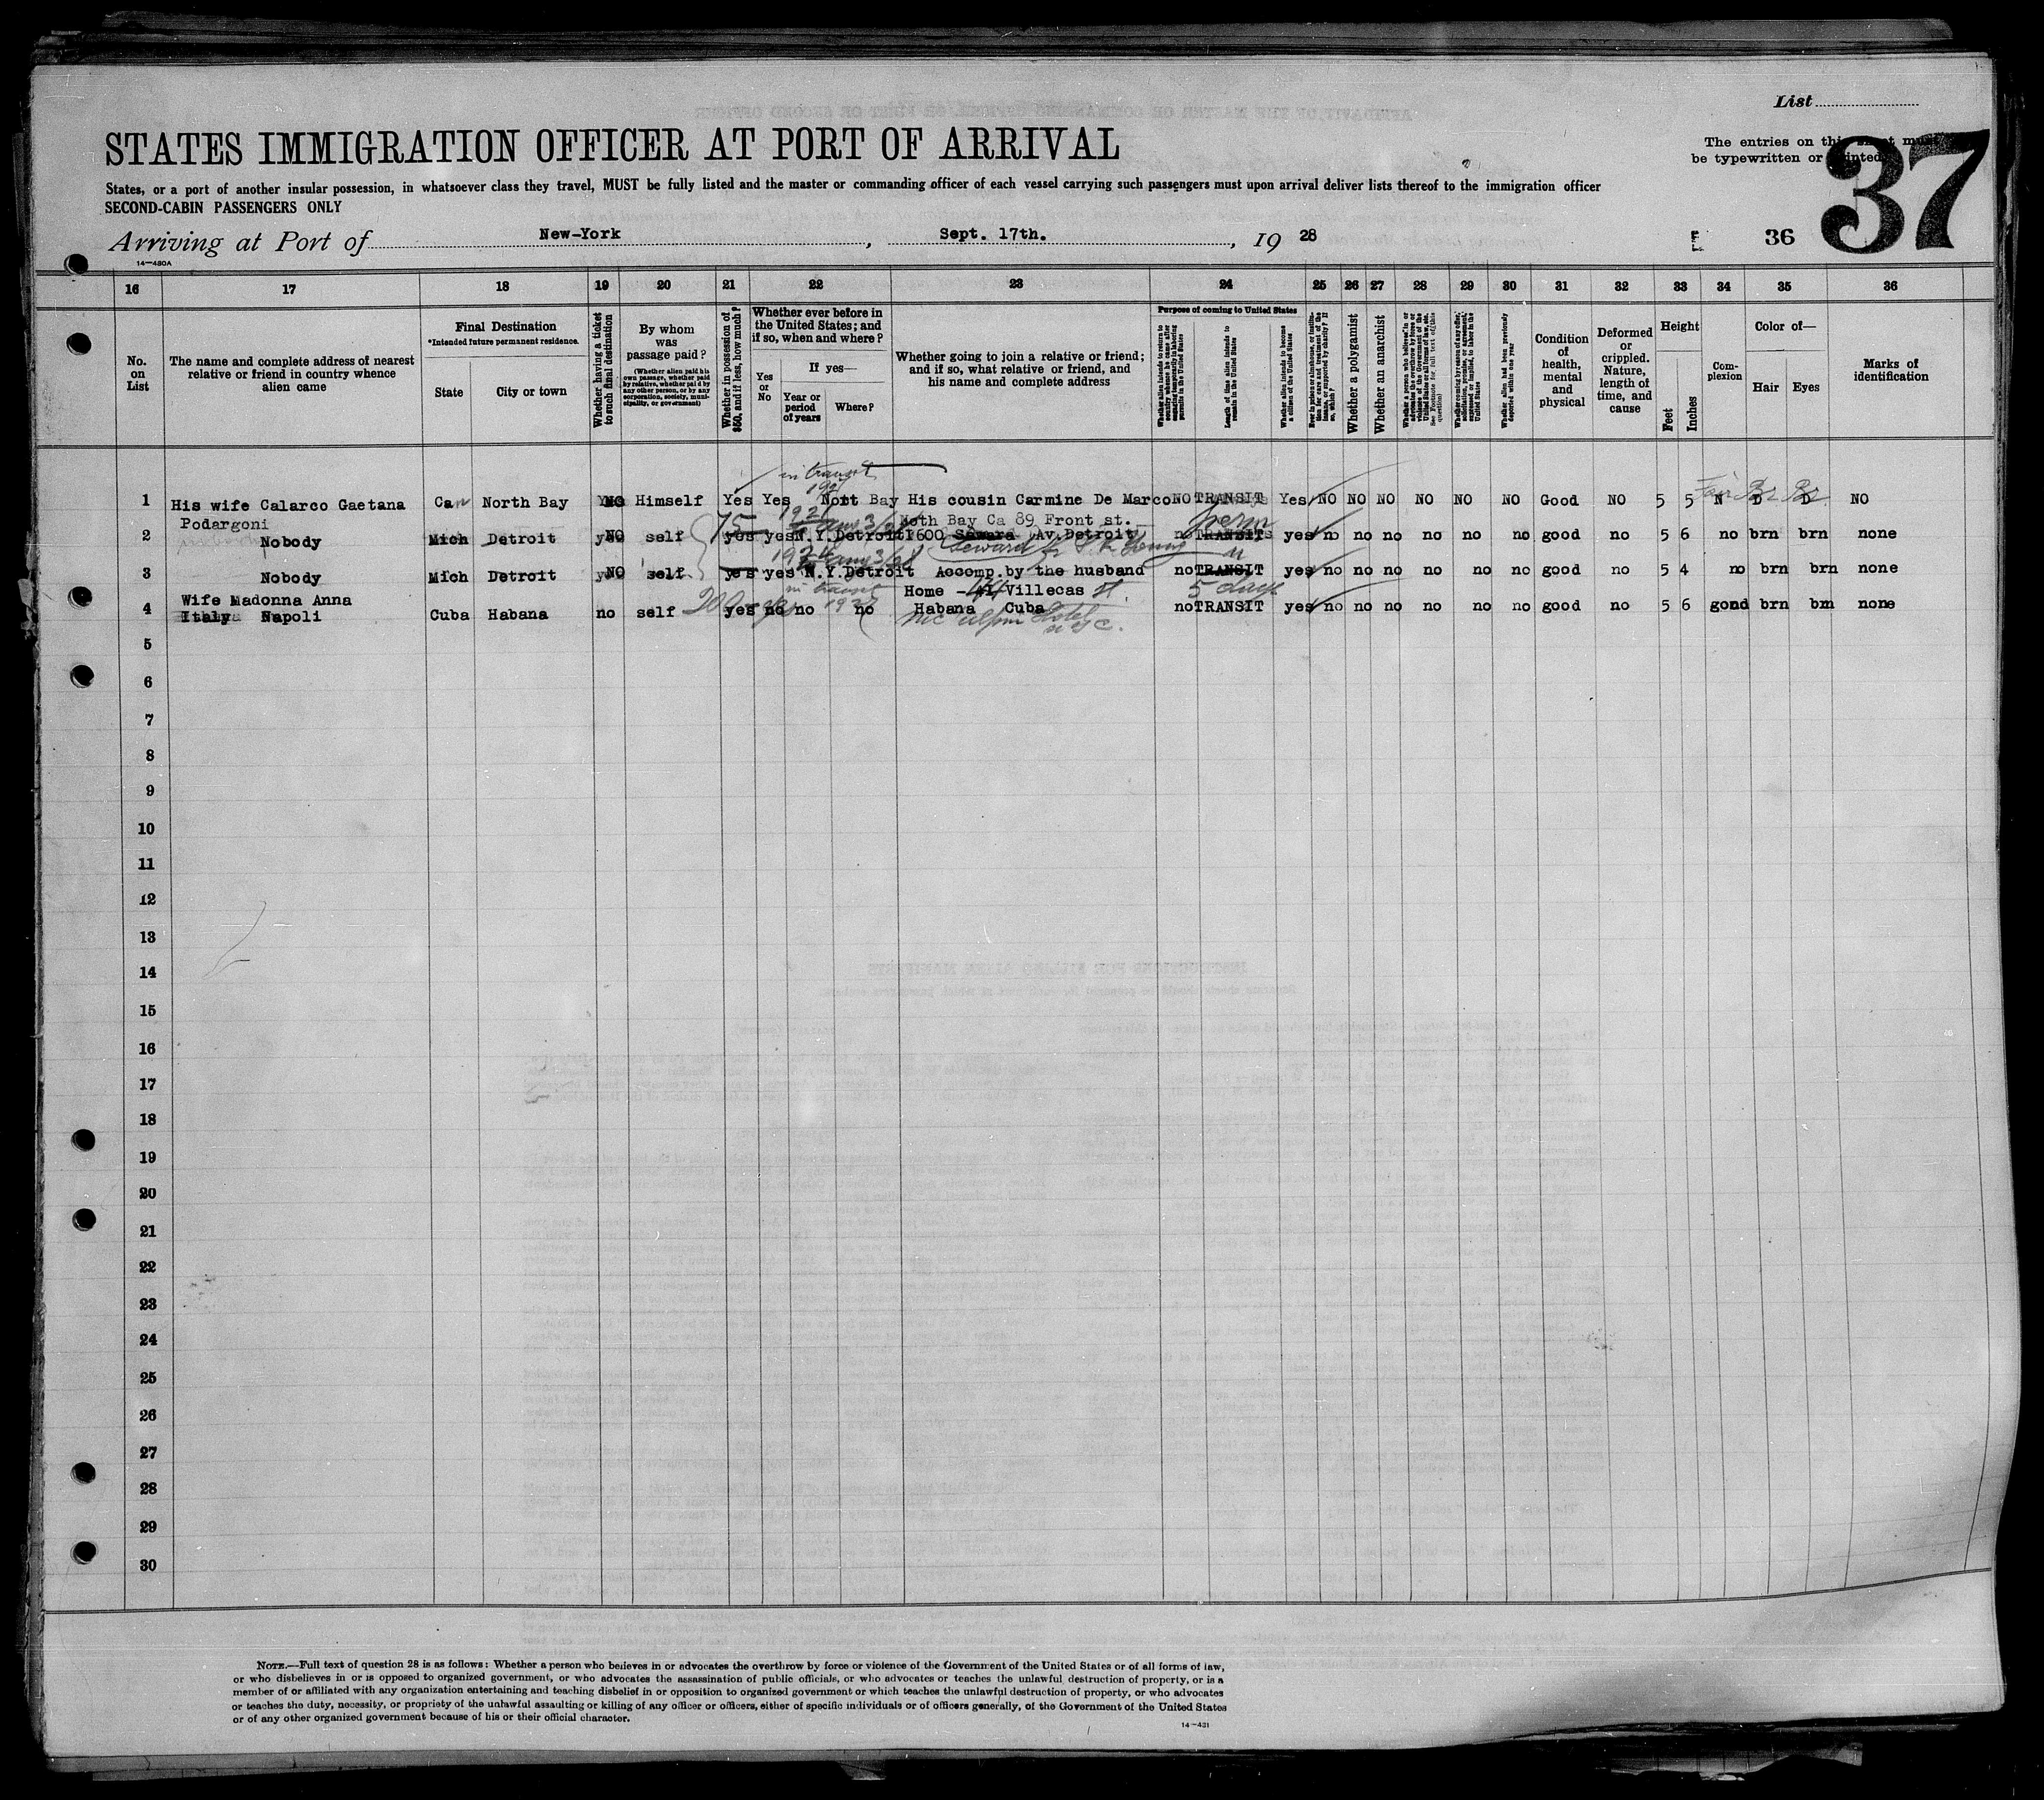 List
STATES IMMIGRATION OFFICER AT PORT OF ARRIVAL
The entries on this sheet must
be typewritten or printed
37
States, or a port of another insular possession, in whatsoever class they travel, MUST be fully listed and the master or commanding officer of each vessel carrying such passengers must upon arrival deliver lists thereof to the immigration officer
SECOND-CABIN PASSENGERS ONLY
Arriving at Port of New-York, Sept. 17th., 19 28
36
14-480A
16 17 18 19 20 21 22 23 24 25 26 27 28 29 30 31 32 33 34 35 36
No. on List
The name and complete address of nearest relative or friend in country whence alien came
Final Destination
*Intended future permanent residence.
State
City or town
Whether having a ticket to such final destination
By whom was passage paid?
(Whether alien paid his own passage, whether paid by relative, whether paid by any other person, or by any corporation, society, municipality, or government)
Whether in possession of $50, and if less, how much?
Whether ever before in the United States; and if so, when and where?
Yes or No
If yes—
Year or period of years
Where?
Whether going to join a relative or friend; and if so, what relative or friend, and his name and complete address
Purpose of coming to United States
Whether alien intends to return to country whence he came after engaging temporarily in laboring pursuits in the United States
Length of time alien intends to remain in the United States
Whether alien intends to become a citizen of the United States
Ever in prison or almshouse, or institution for care and treatment of the insane, or supported by charity? If so, which?
Whether a polygamist
Whether an anarchist
Whether coming by reason of any offer, solicitation, promise, or agreement, express or implied, to labor in the United States
Whether alien had been previously deported within one year
Condition of health, mental and physical
Deformed or crippled. Nature, length of time, and cause
Height
Feet
Inches
Complexion
Color of—
Hair
Eyes
Marks of identification
in transit
1 His wife Calarco Gaetana Can North Bay NO Himself Yes Yes Nort Bay His cousin Carmine De Marco NO TRANSIT Yes NO NO NO NO NO NO Good NO 5 5 Fair Br Br NO
Podargoni 75 Noth Bay Ca 89 Front st. perm
2 Nobody Mich Detroit NO self yes yes N.Y. Detroit 1600 Av. Detroit no TRANSIT yes no no no no no no good no 5 6 no brn brn none
Seward
3 Nobody Mich Detroit NO self yes yes N.Y. Detroit Accomp. by the husband no TRANSIT yes no no no no no no good no 5 4 no brn brn none
Wife Madonna Anna in transit Home - 44 Villecas st. 5 days
4 Italy Napoli Cuba Habana no self 200 yes no no no Habana Cuba no TRANSIT yes no no no no no no good no 5 6 good brn brn none
Hotel
5
6
7
8
9
10
11
12
13
14
15
16
17
18
19
20
21
22
23
24
25
26
27
28
29
30
NOTE.—Full text of question 28 is as follows: Whether a person who believes in or advocates the overthrow by force or violence of the Government of the United States or of all forms of law,
or who disbelieves in or is opposed to organized government, or who advocates the assassination of public officials, or who advocates or teaches the unlawful destruction of property, or is a
member of or affiliated with any organization entertaining and teaching disbelief in or opposition to organized government or which teaches the unlawful destruction of property, or who advocates
or teaches the duty, necessity, or propriety of the unlawful assaulting or killing of any officer or officers, either of specific individuals or of officers generally, of the Government of the United States
or of any other organized government because of his or their official character.
14-421